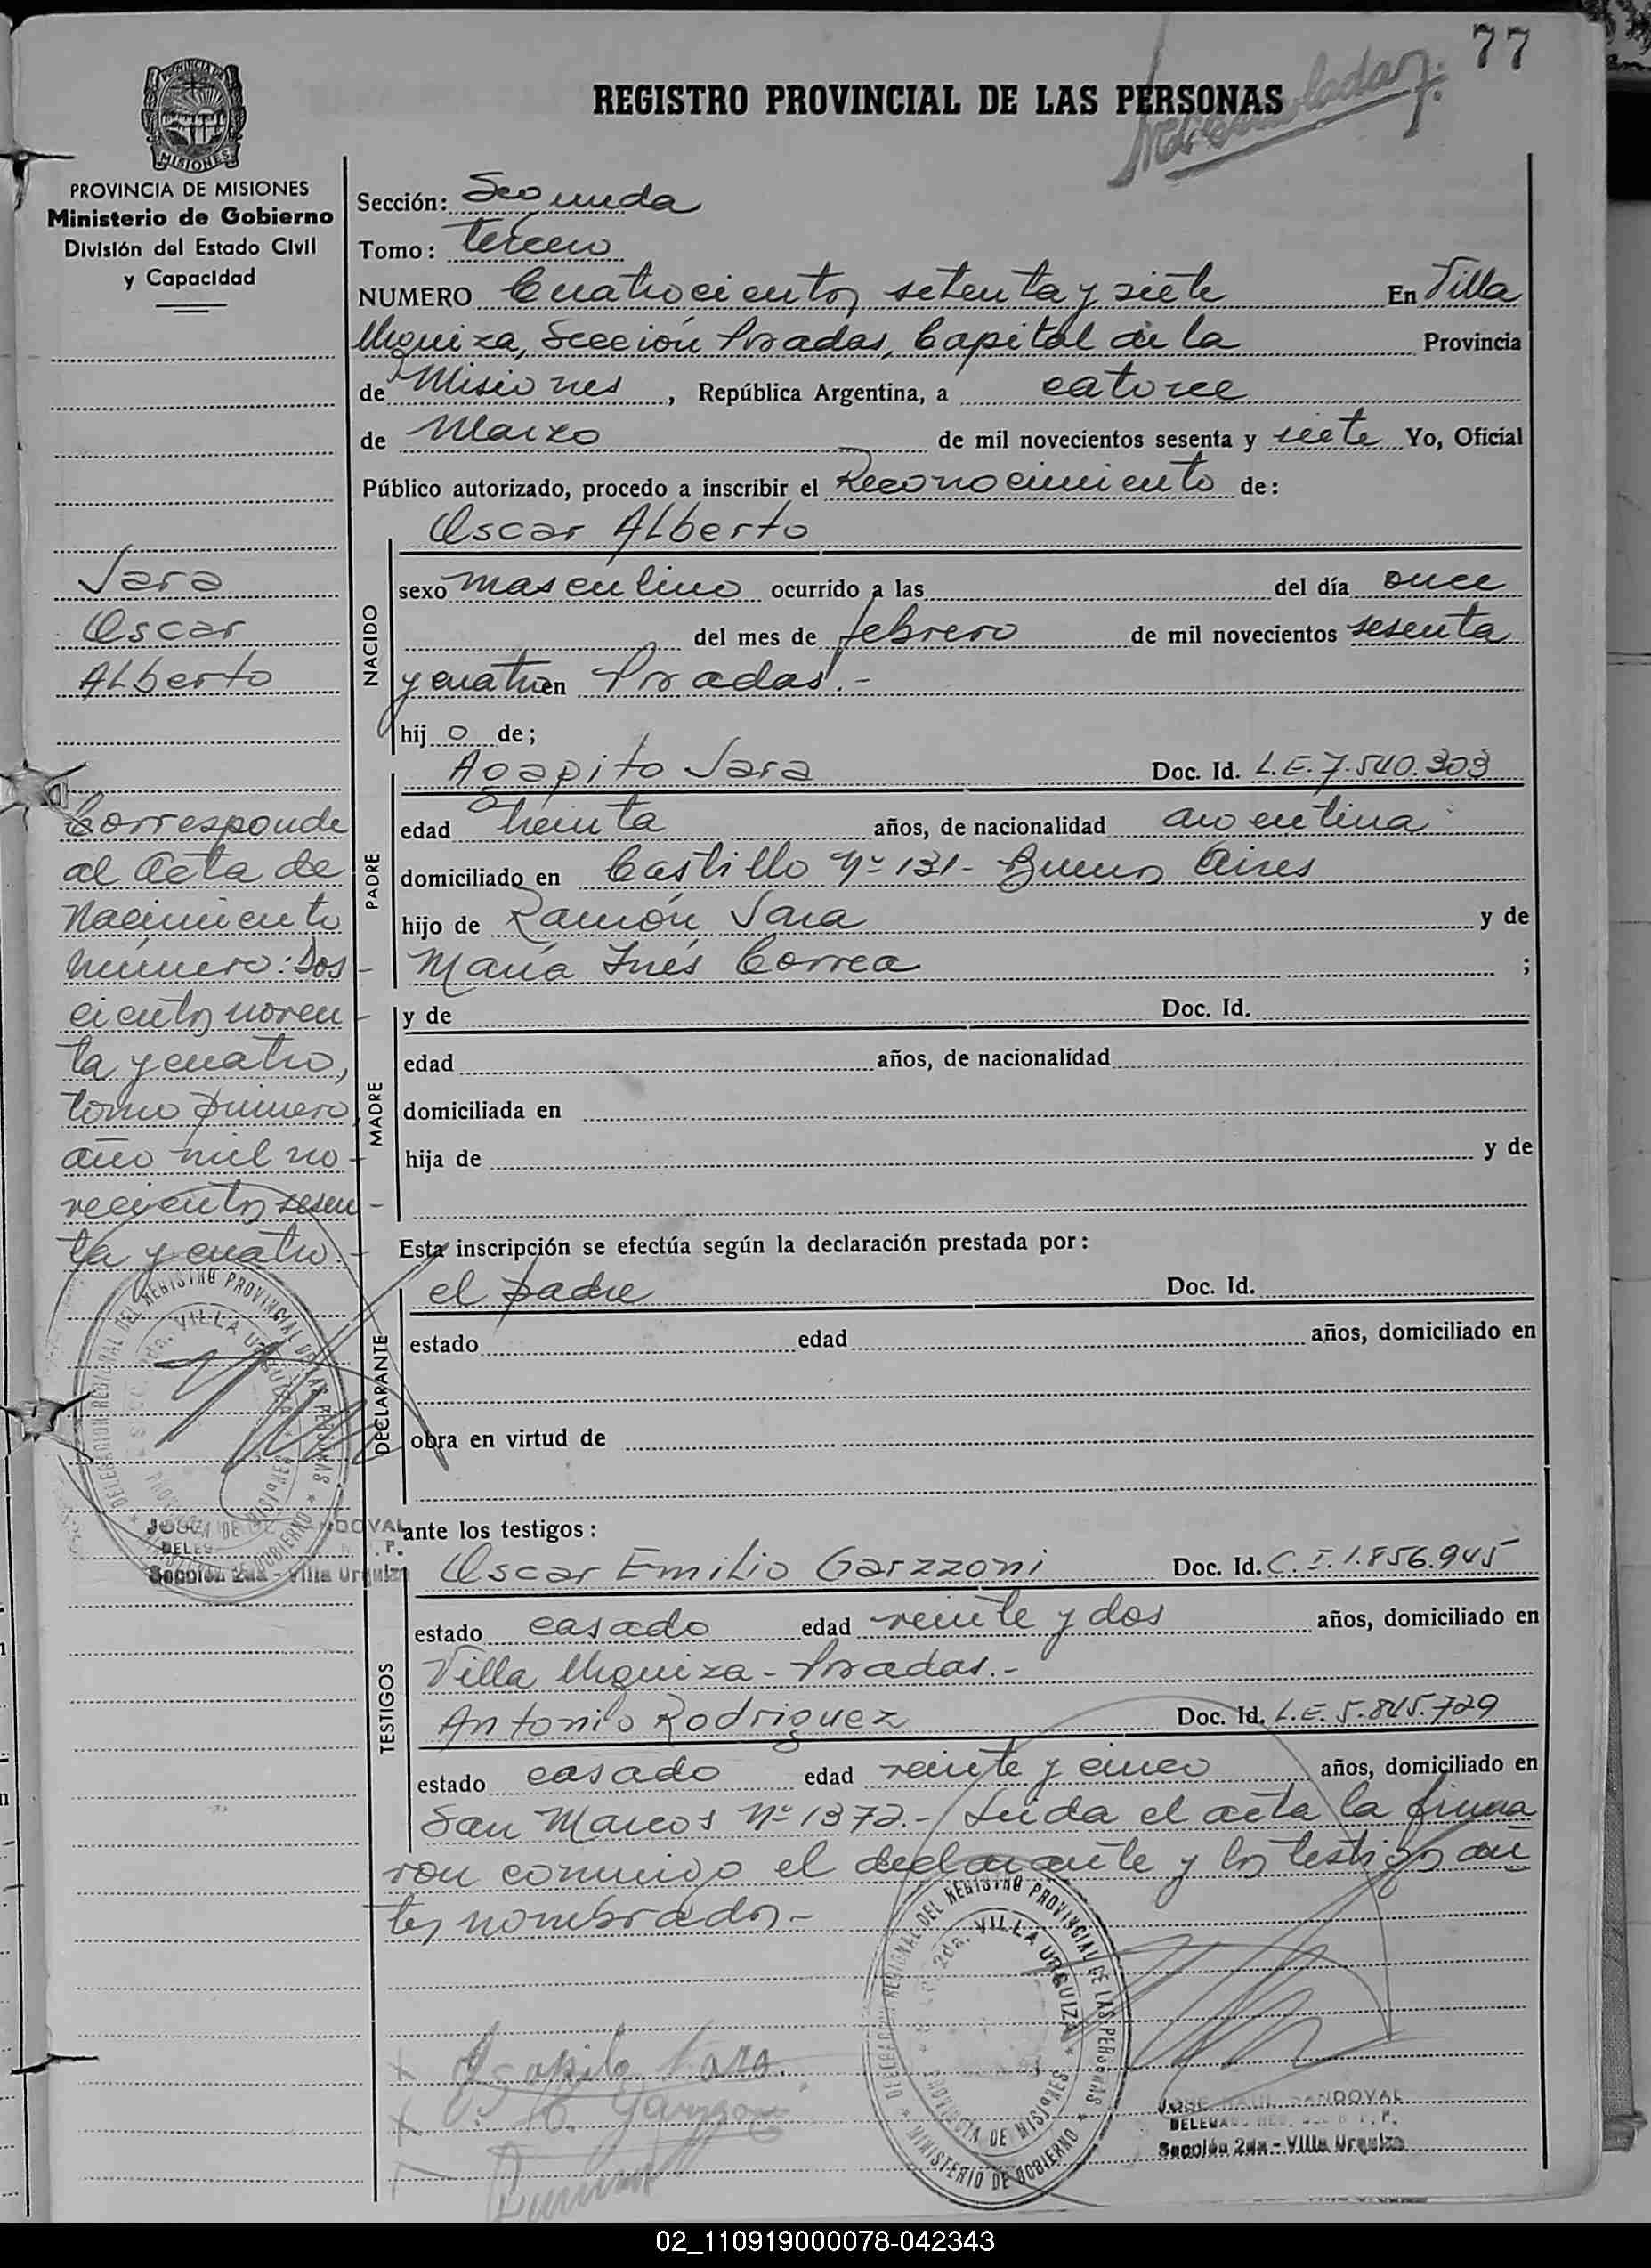 77
REGISTRO PROVINCIAL DE LAS PERSONAS
PROVINCIA DE MISIONES
PROVINCIA DE MISIONES
Ministerio de Gobierno
División del Estado Civil
y Capacidad
Sección: Segunda
Tomo: tercero
NUMERO Cuatrocientos setenta y siete En Villa
Urquiza, Sección Posadas, Capital de la Provincia
de Misiones, República Argentina, a catorce
de Marzo de mil novecientos sesenta y siete Yo, Oficial
Público autorizado, procedo a inscribir el Reconocimiento de:
Oscar Alberto
NACIDO
sexo masculino ocurrido a las del día once
del mes de febrero de mil novecientos sesenta
y cuatro en Posadas.-
hijo de;
Jara
Oscar
Alberto
PADRE
Agapito Jara Doc. Id. L.E. 7.540.303
edad treinta años, de nacionalidad argentina
domiciliado en Castillo Nº 131- Buenos Aires
hijo de Ramón Jara y de
María Inés Correa ;
MADRE
y de Doc. Id.
edad años, de nacionalidad
domiciliada en
hija de y de
Corresponde
al Acta de
Nacimiento
número: Dos-
cientos noven-
ta y cuatro,
tomo primero,
año mil no-
vecientos sesen-
ta y cuatro.-
Esta inscripción se efectúa según la declaración prestada por:
DECLARANTE
el padre Doc. Id.
estado edad años, domiciliado en
obra en virtud de
DELEGACION REGIONAL DEL REGISTRO PROVINCIAL DE LAS PERSONAS
2da. VILLA URQUIZA
MINISTERIO DE GOBIERNO
Sección 2da - Villa Urquiza
ante los testigos:
TESTIGOS
Oscar Emilio Garzzoni Doc. Id. C.I. 1.856.945
estado casado edad veinte y dos años, domiciliado en
Villa Urquiza - Posadas.-
Antonio Rodriguez Doc. Id. L.E. 5.845.729
estado casado edad veinte y cinco años, domiciliado en
San Marcos Nº 1372.- Leída el acta la firma
ron conmigo el declarante y los testigos an
tes nombrados.-
DELEGACION REGIONAL DEL REGISTRO PROVINCIAL DE LAS PERSONAS
2da. VILLA URQUIZA
PROVINCIA DE MISIONES
MINISTERIO DE GOBIERNO
Agapito Jara
JOSE RAUL SANDOVAL
Sección 2da - Villa Urquiza
02_110919000078-042343